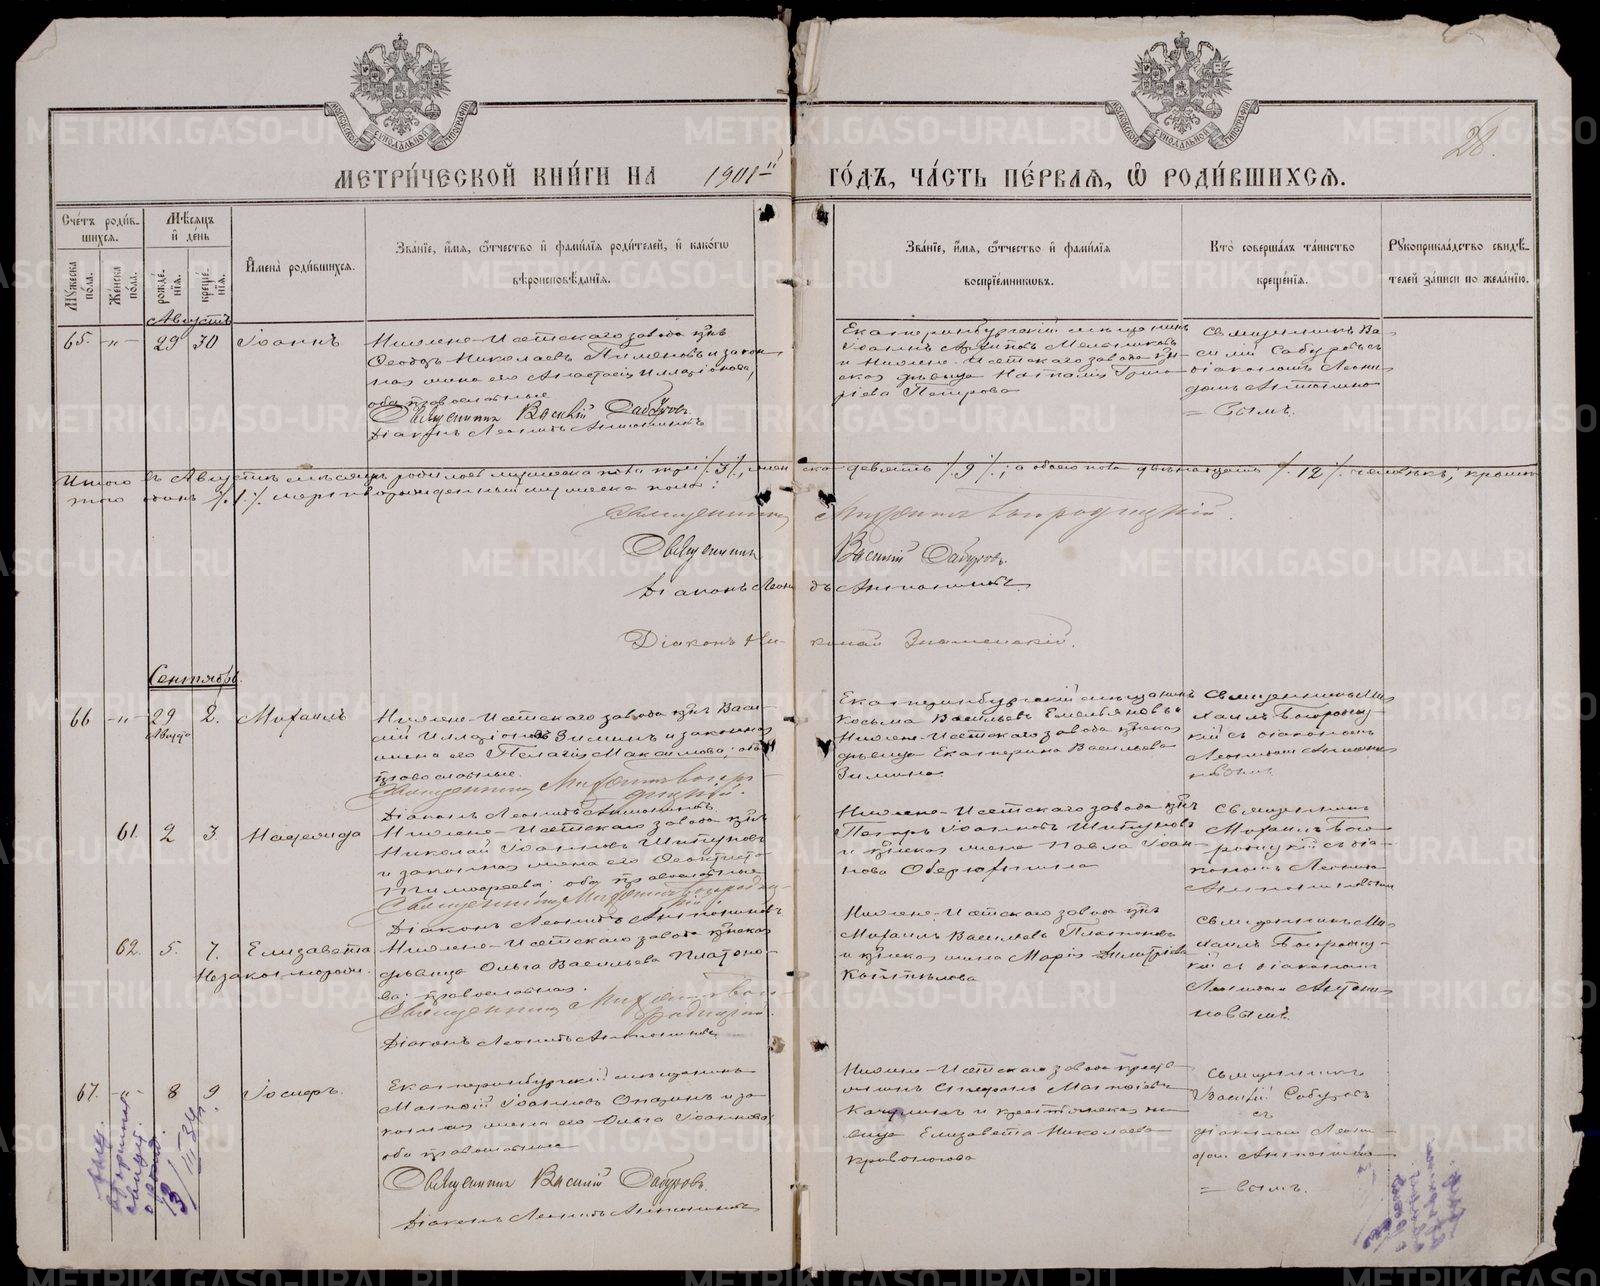 28.
МЕТРИ́ЧЕСКОЙ КНИ́ГИ НА 1901-й ГО́ДЪ, ЧА́СТЬ ПЕ́РВАЯ, Ѽ РОДИ́ВШИХСЯ.
Сче́тъ роди́в-
шихся.
Му́жеска по́ла.
Же́нска по́ла.
Мѣ́сяцъ
и҆ де́нь
рожде́нїя.
креще́нїя.
И҆мена̀ роди́вшихся.
Зва́нїе, и҆́мя, ѻ҆́тчество и҆ фами́лїя роди́телей, и҆ како́гѡ
вѣроисповѣ́данїя.
Зва́нїе, и҆́мя, ѻ҆́тчество и҆ фами́лїя
воспрїе́мникѡвъ.
Кто̀ соверша́лъ та́инство
креще́нїя.
Рꙋкоприкла́дство свидѣ́-
телей за́писи по жела́нїю.
Августъ
65. -„- 29 30 Іоаннъ
Нижне-Исетскаго завода кр҃нъ
Ѳеодоръ Николаевъ Пименовъ и закон
ная жена его Анастасія Илларіонова,
оба православные
Священникъ Василій Сабуровъ.
Діаконъ Леонидъ Антониновъ
Екатеринбургскій мѣщанинъ
Іоаннъ Мельниковъ
и Нижне-Исетскаго завода кр-
ская дѣвица Наталія Григо
ріева Петрова
Священникъ Ва-
силій Сабуровъ съ
діакономъ Леони-
домъ Антонино
= вымъ.
Итого въ Августѣ мѣсяцѣ родилось мужеска пола три /3/, женска девять /9/; а обоего пола двѣнадцать /12/ человѣкъ; кромѣ
того одинъ /1/ мертворожденный мужеска пола.
Священникъ Михаилъ Богородицкій.
Священникъ Василій Сабуровъ.
Діаконъ Леонидъ Антониновъ.
Діаконъ Николай Знаменскій.
Сентябрь.
66 -„- 29 2. Михаилъ
Августа
Нижне-Исетскаго завода кр҃нъ Васи-
лій Илларіоновъ Зиминъ и законная
жена его Пелагія Максимова; оба
православные.
Священникъ Михаилъ Богоро-
дицкій.
Діаконъ Леонидъ Антониновъ.
Екатеринбургскій мѣщанинъ
Косьма Васильевъ Емельяновъ и
Нижне-Исетскаго завода кр҃нская
дѣвица Екатерина Васильева
Зимина
Священникъ Ми
хаилъ Богородиц-
кій съ діакономъ
Леонидомъ Антони
новымъ
61. 2 3. Надежда
Нижне-Исетскаго завода кр҃нъ
Николай Іоанновъ Шипуновъ
и законная жена его Ѳеоктиста
Тимоѳеева; оба православные
Священникъ Михаилъ Богородиц-
кій.
Діаконъ Леонидъ Антониновъ
Нижне-Исетскаго завода кр҃нъ
Петръ Іоанновъ Шипуновъ
и кр҃нская жена Павла Іоан-
нова Оберюхтина
Священникъ
Михаилъ Бого
родицкій съ діа-
кономъ Леонидомъ
Антониновымъ
62. 5. 7. Елизавета
Незаконнорожд.
Нижне-Исетскаго завода кр҃нская
дѣвица Ольга Васильева Платоно-
ва; православная.
Священникъ Михаилъ Бого-
родицкій.
Діаконъ Леонидъ Антониновъ
Нижне-Исетскаго завода кр҃нъ
Михаилъ Васильевъ Платоновъ
и кр҃нская жена Марія Димитріева
Коптѣлова
Священникъ Ми-
хаилъ Богородиц-
кій съ діакономъ
Леонидомъ Антони
новымъ.
67. - 8 9 Іосифъ.
Екатеринбургскій мѣщанинъ
Матѳій Іоанновъ Опаринъ и за-
конная жена его Ольга Іоаннова
оба православные
Священникъ Василій Сабуровъ.
Діаконъ Леонидъ Антониновъ
Нижне-Исетскаго завода кресть-
янинъ Стефанъ Матѳіевъ
и крестьянская дѣ
вица Елизавета Николаева
Кривоногова
Священникъ
Василій Сабуровъ
съ
діакономъ Леони-
домъ Антонино
= вымъ.
METRIKI.GASO-URAL.RU